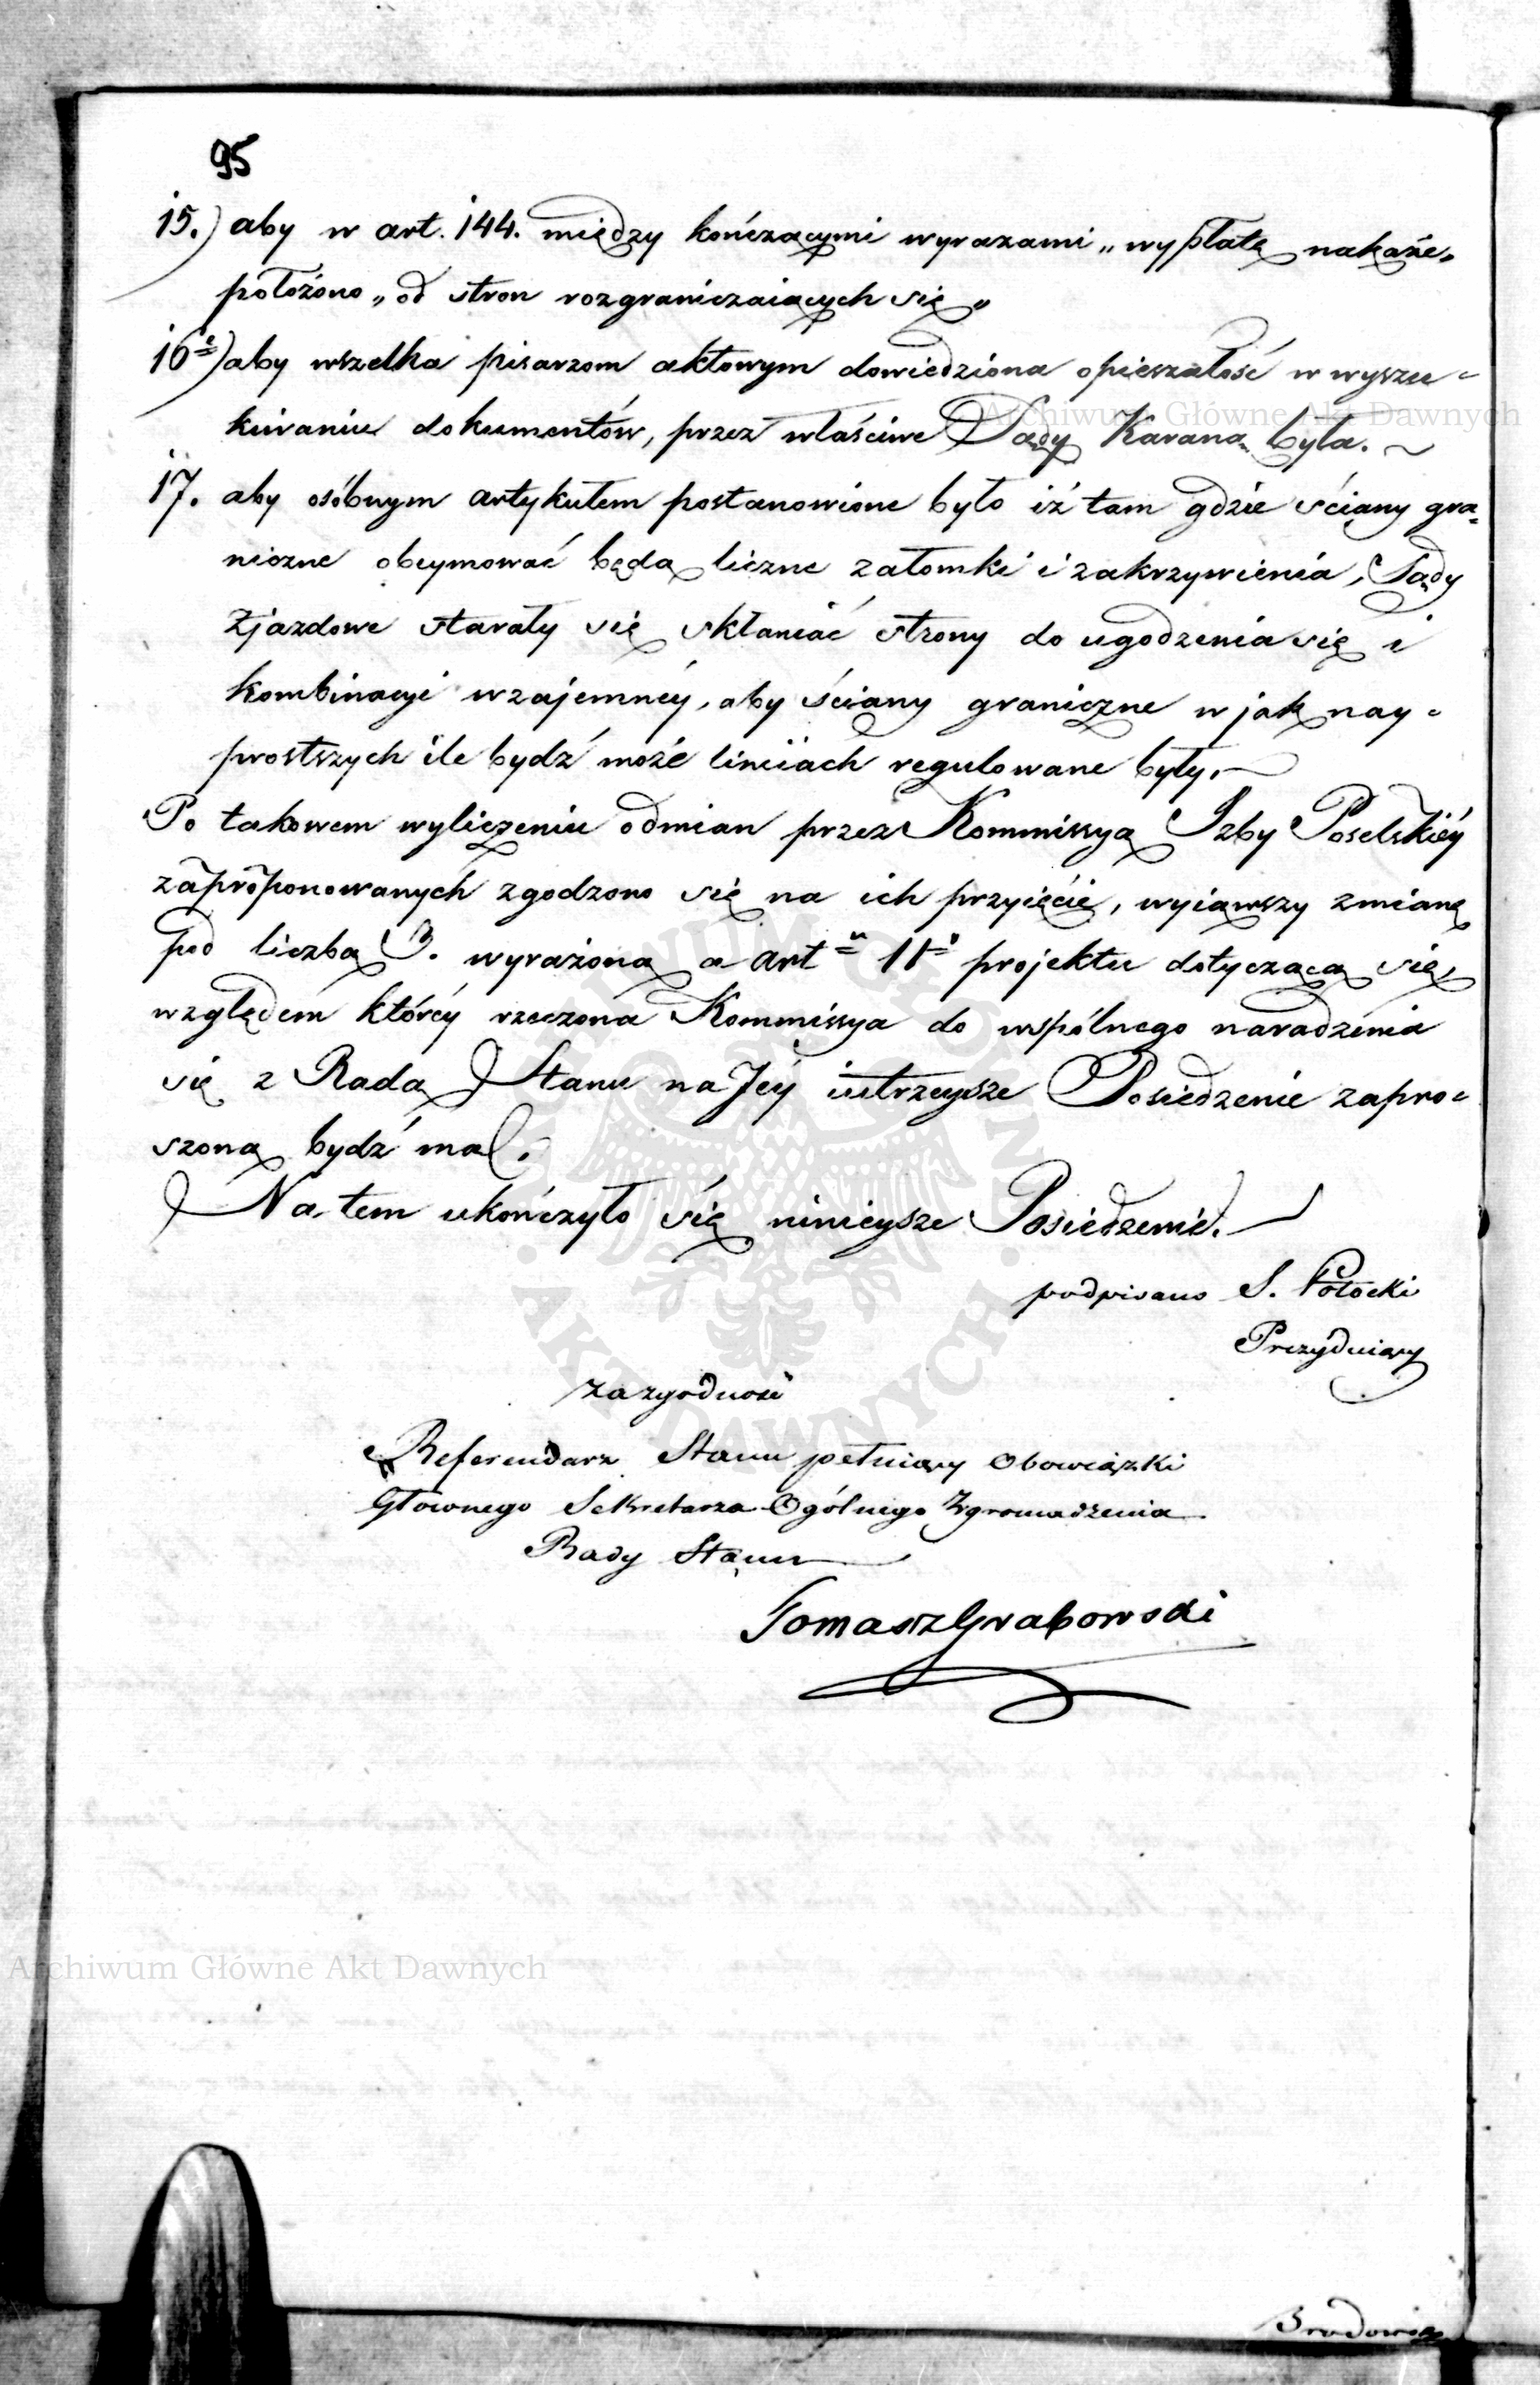 95
15.) aby w art. 144. między kończącymi wyrazami „wypłatę nakaże„
położono „od stron rozgraniczaiących się„
16e) aby wszelka pisarzom aktowym dowiedziona opieszałość w wyszu-
kiwaniu dokumentów, przez właściwe Sądy Karana była.
17. aby osóbnym artykułem postanowione było iż tam gdzie ściany gra-
niczne obeymować będą liczne załomki i zakrzywienia, Sądy
Zjazdowe starały się skłaniać strony do ugodzenia się i
kombinacyi wzajemnéy, aby ściany graniczne w jak nay-
prostszych ile bydź może liniiach regulowane były.
Po takowem wyliczeniu odmian przez Kommissyą Izby Poselskiéy
zaproponowanych zgodzono się na ich przyięcie, wyiąwszy zmianę
pod liczbą 3. wyrażoną a artu 11o projektu dotyczącą się,
względem któréy rzeczona Kommissya do wspólnego naradzenia
się z Radą Stanu na Jéy iutrzeysze Posiedzenie zapro-
szoną bydź ma.
Na tem ukończyło się ninieysze Posiedzenie.
podpisano S. Potocki
Prezyduiący
Za zgodność
Referendarz Stanu pełniący Obowiązki
Głównego Sekretarza Ogólnego Zgromadzenia
Rady Stanu
Tomasz Grabowski
Archiwum Główne Akt Dawnych
ARCHIWUM GŁÓWNE · AKT DAWNYCH ·
Archiwum Główne Akt Dawnych